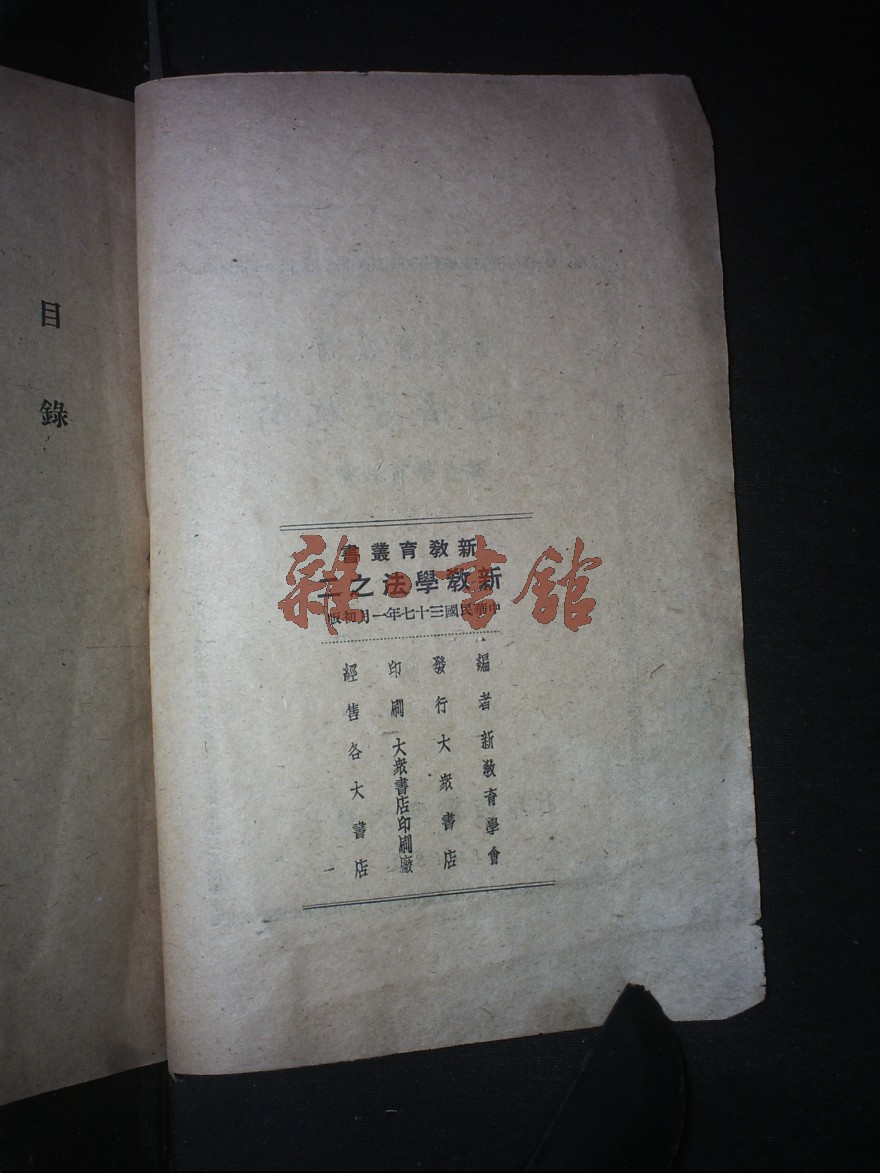 目錄
新教育叢書
新教學法之二
中華民國三十七年一月初版
編者新教育學會
發行大衆書店
印刷大衆書店印刷廠
經售各大書店
雜·書館